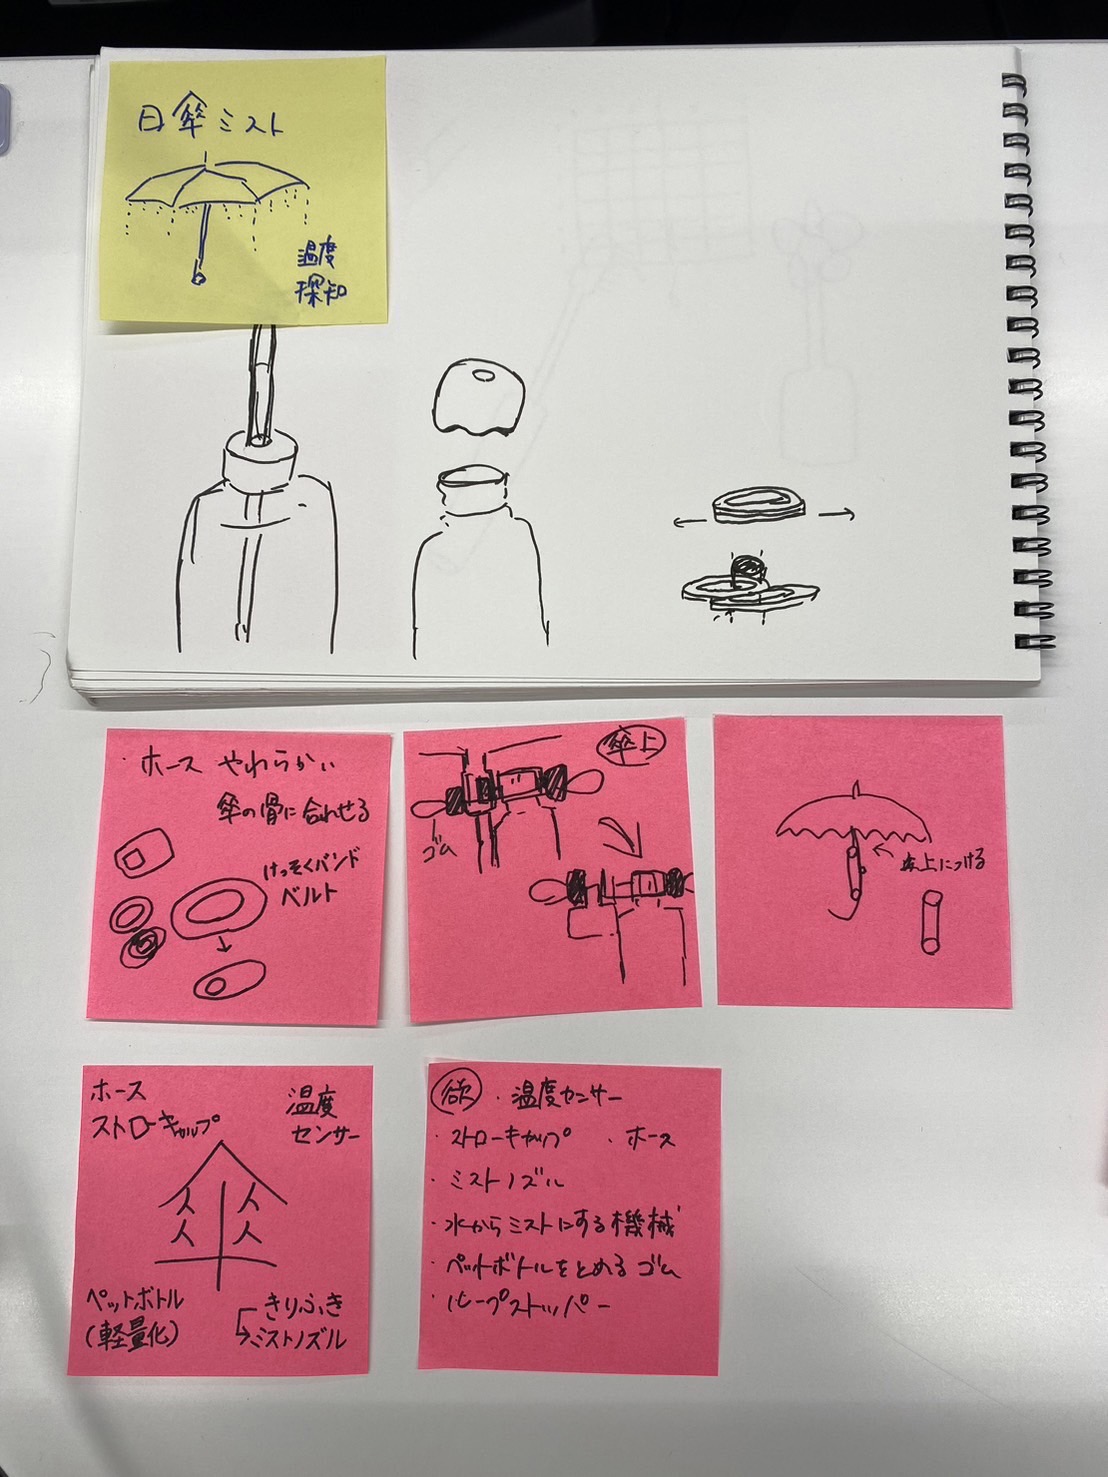 日傘ミスト
温度
探知
・ホース やわらかい
傘の骨に合わせる
けっそくバンド
ベルト
傘上
ゴム
上につける
ホース
ストローキャップ
温度
センサー
傘
ペットボトル
(軽量化)
きりふき
ミストノズル
欲 ・温度センサー
・ストローキャップ ・ホース
・ミストノズル
・水からミストにする機械
・ペットボトルをとめるゴム
・ループストッパー